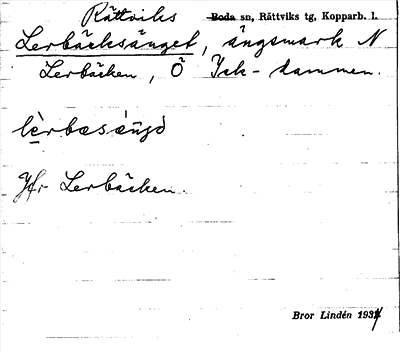 Rättviks Boda sn, Rättviks tg, Kopparb. l.
Lerbäcksänget, ängsmark N
Lerbäcken, Ö Isk-dammen.
lèrbæsæ̀ŋə
Jfr Lerbäcken.
Bror Lindén 1934